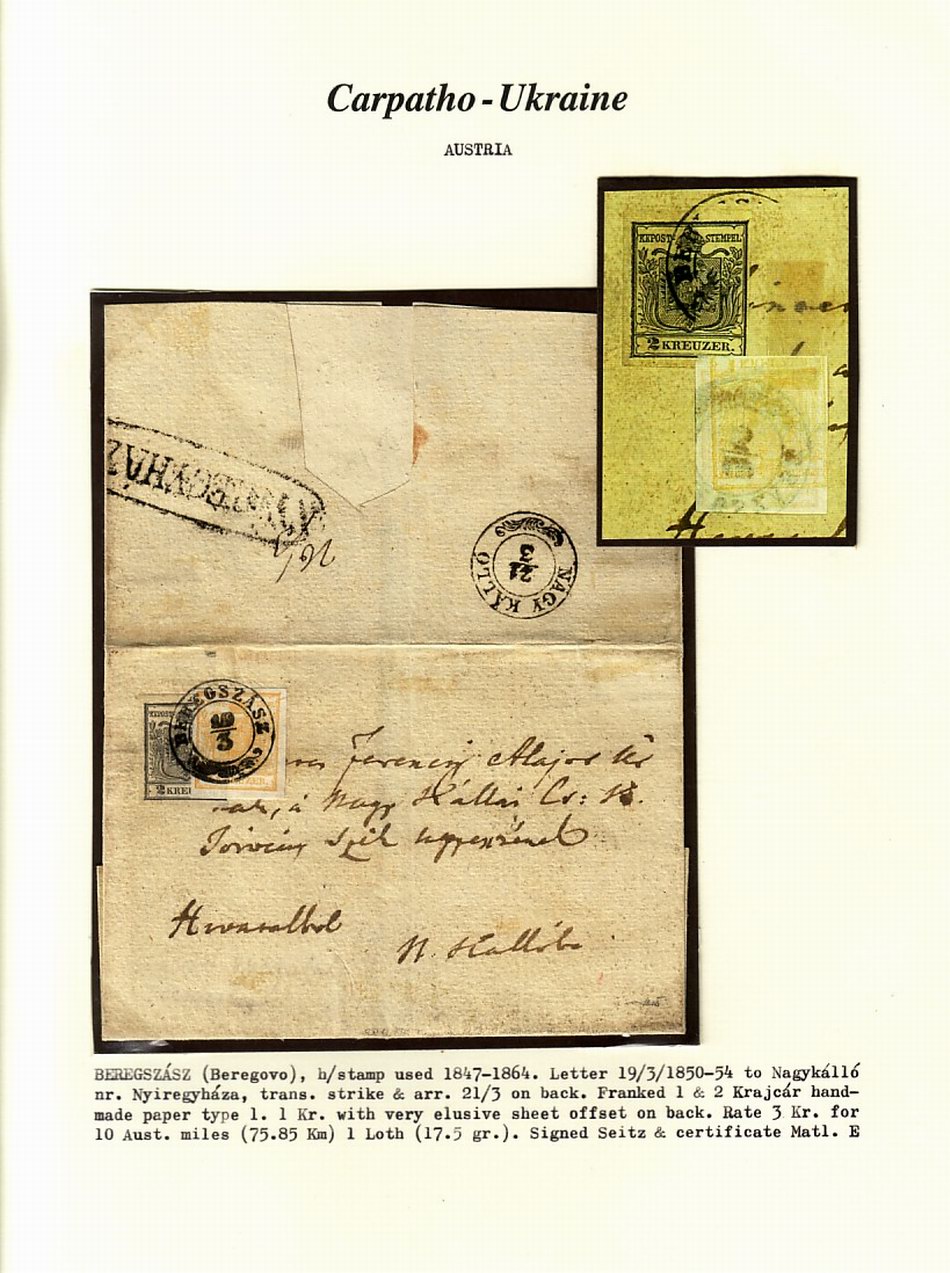 Carpatho - Ukraine
AUSTRIA
KKPOST-STEMPEL
2 KREUZER.
BER
NYIREGYHÁZ
NAGY KÁLLÓ
21
3
BEREGSZÁSZ
19
3
2 KREU
ZER.
Ferenciy Alajos Úr
á Nagy Kállai Cs: K.
Törvény Szék
N. Kállóba
BEREGSZÁSZ (Beregovo), h/stamp used 1847-1864. Letter 19/3/1850-54 to Nagykálló
nr. Nyiregyháza, trans. strike & arr. 21/3 on back. Franked 1 & 2 Krajcár hand-
made paper type 1. 1 Kr. with very elusive sheet offset on back. Rate 3 Kr. for
10 Aust. miles (75.85 Km) 1 Loth (17.5 gr.). Signed Seitz & certificate Matl. E